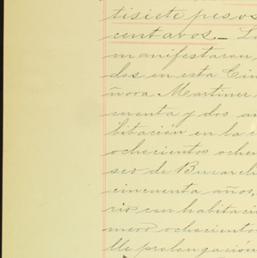 tisiete pesos
centavos.- La
manifestaron,
dos en esta Ciu
ñora Martiner
cuenta y dos añ
bitación en la c
ochocientos ochen
seo de Bucareli
cincuenta años,
rio con habitació
mero ochocientos
lle prolongación